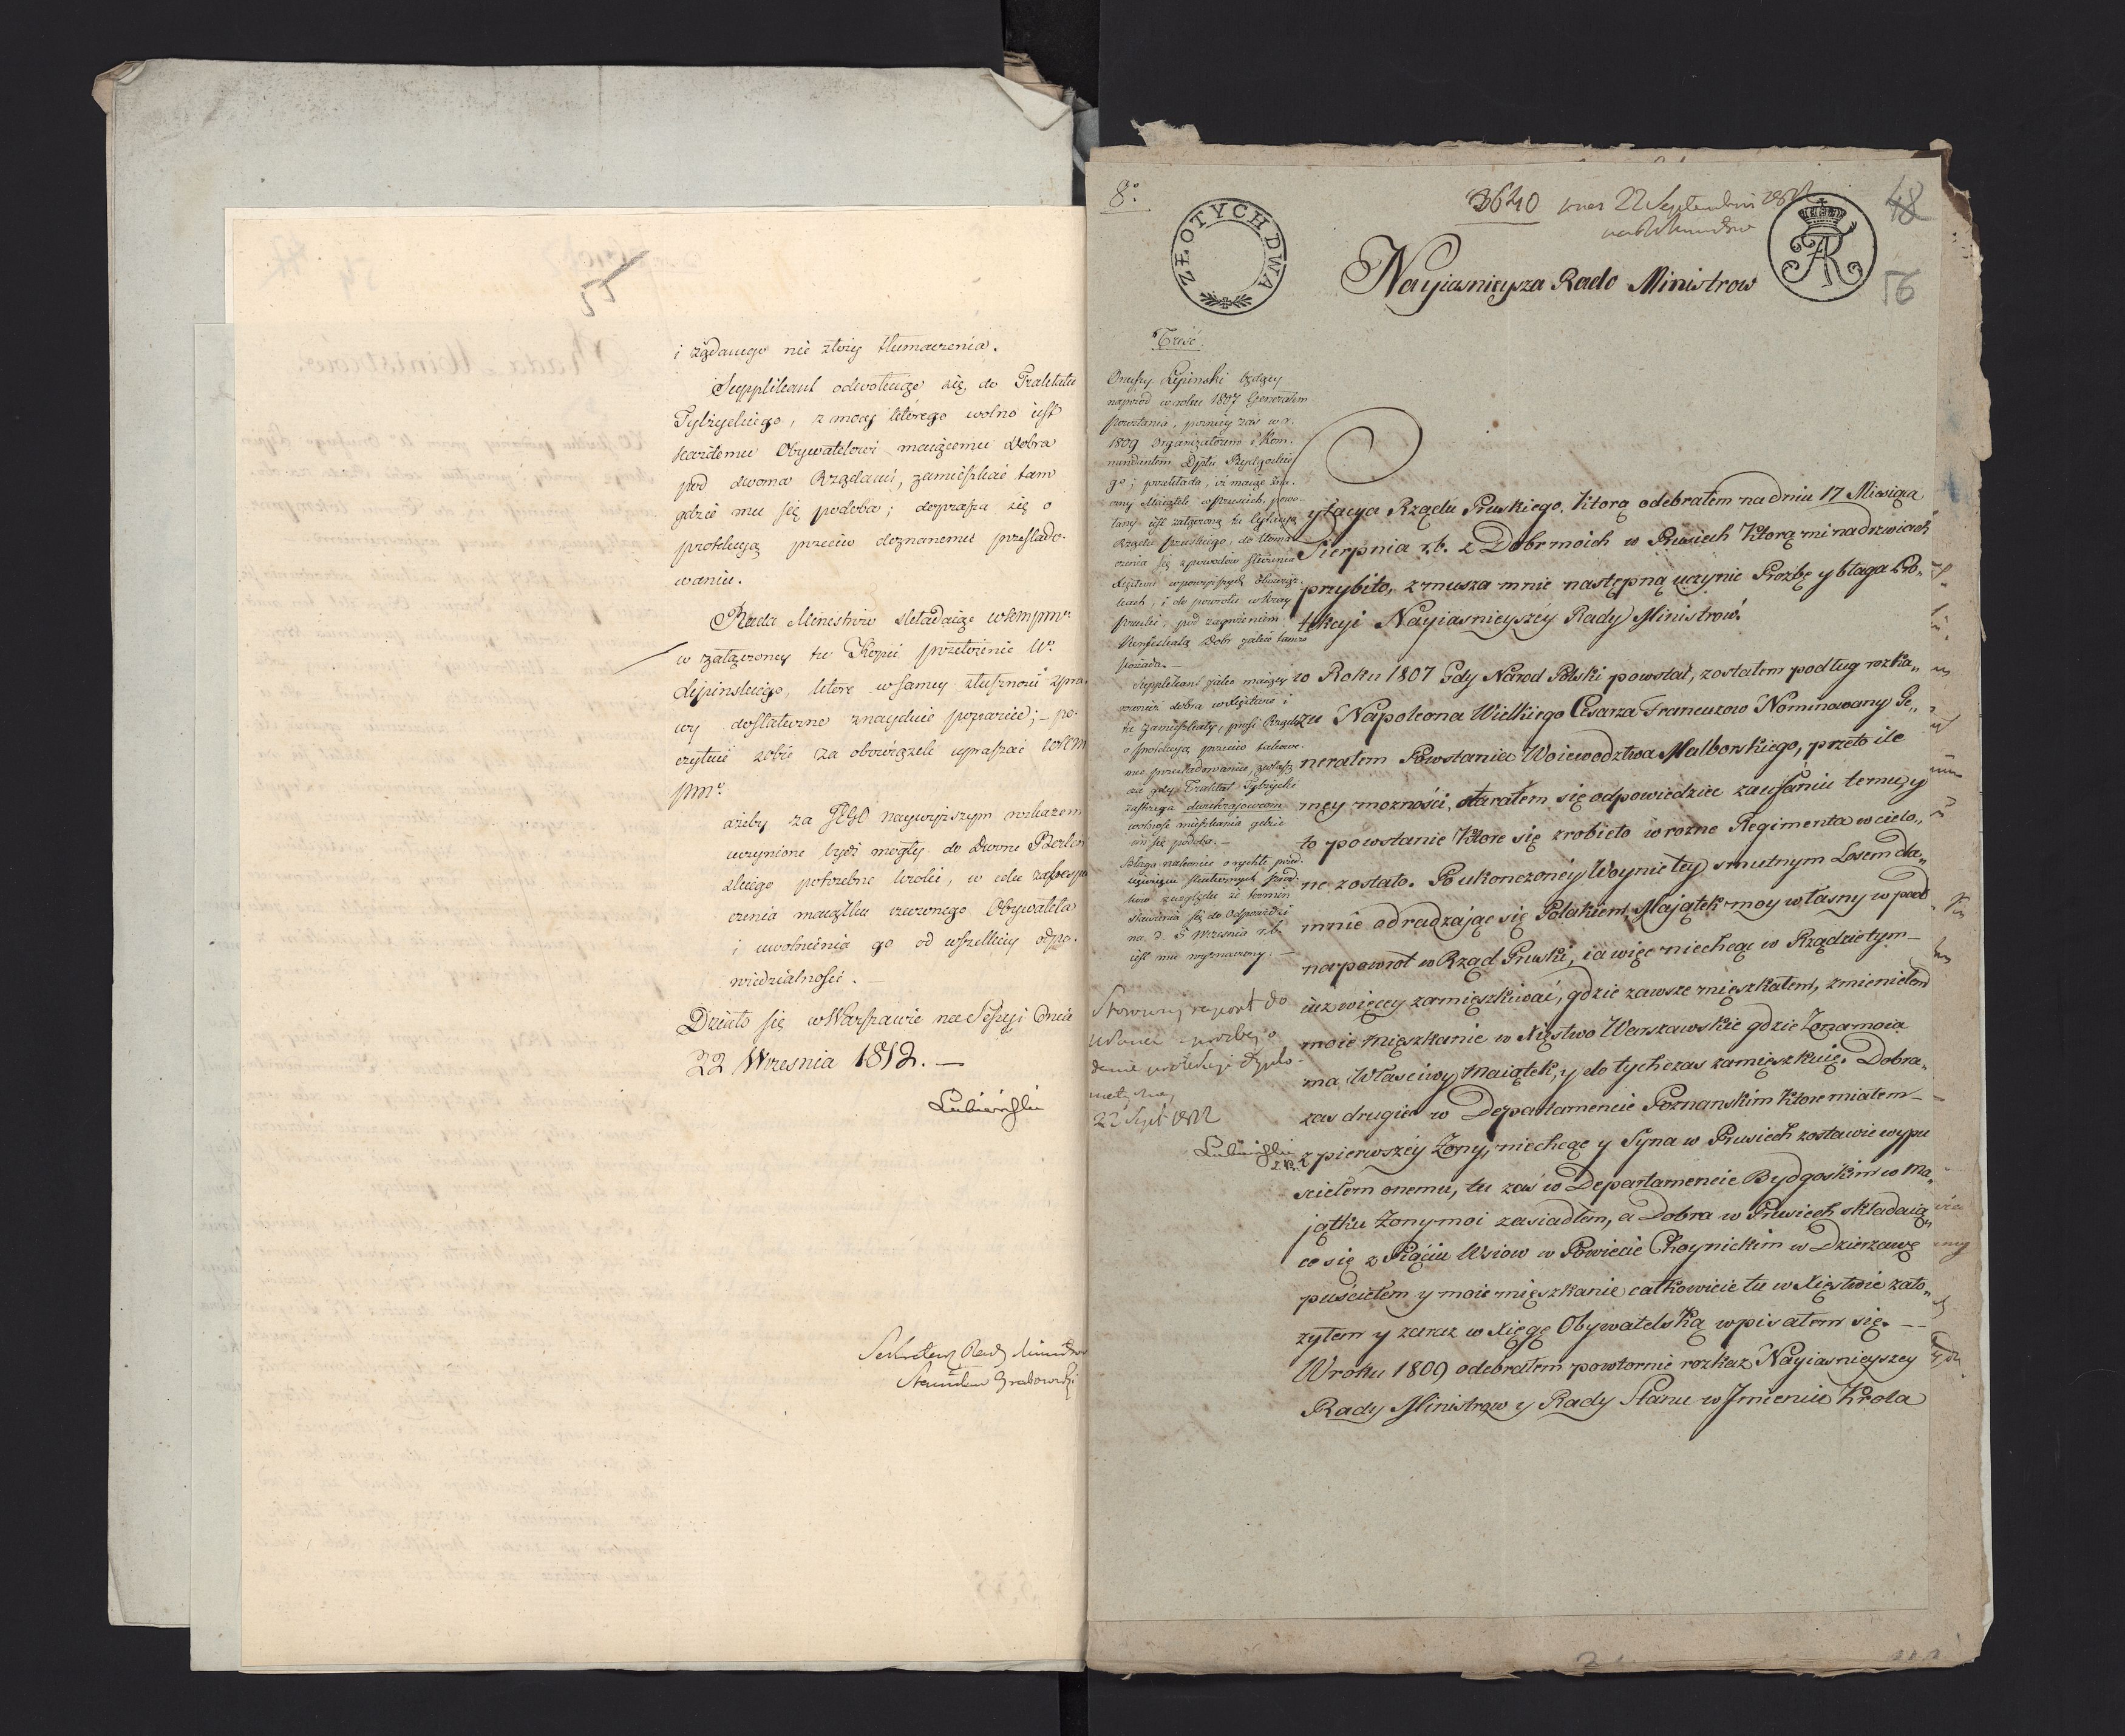 i żądanego nie złoży tłumaczenia.
Supplikant odwołuiąc się do Traktatu
Tylżyckiego, z mocy którego wolno iest
każdemu Obywatelowi maiącemu Dobra
pod dwoma Rządami, zamieszkać tam
gdzie mu się podoba; doprasza się o
protekcyą przeciw doznanemu prześlado-
waniu.
Rada Ministrów składaiąc
w załączoney tu Kopii przełożenie Wo
Lipinskiego, które w samey słuszności spra-
wy dostateczne znayduie poparcie; - po-
czytuie sobie za obowiązek upraszać
żeby za JEGO naywyższym rozkazem
uczynione bydź mogły do Dworu Berliń
skiego potrzebne kroki, w celu zabespie
czenia maiątku rzeczonego Obywatela
i uwolnienia go od wszelkiey odpo-
wiedzialności. -
Działo się w Warszawie na Sessyi Dnia
22 Wrzesnia 1812. -
Lubieński
Sekretarz Rady Ministrów
Stanisław Grabowski
8o
ZŁOTYCH DWA
3640
22 Septembris 1812
48
56
Nayiasnieysza Rado Ministrow
Treść.
Onufry Lipinski będący
naprzód w roku 1807 Generałem
Powstania, poźniey zaś w r.
1809 Organizatorem i Kom-
mendantem Dptu Bydgoskie
go; przekłada, iż maiąc
Maiątek w Prusiech, powo-
łany iest załączoną tu Cytacyą
Rządu Pruskiego, do tłoma
czenia się z powodów
i do powrotu w kray
Pruski, pod zagrożeniem
Konfiskatą Dobr iakie tamże
posiada. -
Supplikant iako maiący
rownież dobra w Xięstwie i
tu zamieszkały, prosi Rządu
o protekcyą przeciw takowe-
mu prześladowaniu,
gdy Traktat Tylżycki
zastrzega
wolność mieszkania gdzie
im się podoba. -
Błaga nakoniec o rychłe przed-
sięwzięcie skutecznych
względu że termin
stawienia się do Odpowiedzi
na d. 5 Wrzesnia r.b.
iest mu wyznaczony. -
Stosowny raport do
Króla z prośbą o
danie protekcyi dyplo-
matyczney
22 Sept 1812
Lubieński
Cytacya Rządu Pruskiego, Ktorą odebrałem na dniu 17 Miesiąca
Sierpnia r.b. z Dobr moich w Prusiech Ktorą mi na drzwiach
przybito, zmusza mnie następną uczynic Prozbę y błaga Pro„
tekcyi Nayiasnieyszéy Rady Ministrow.
w Roku 1807 Gdy Narod Polski powstał, zostałem podług rozka„
zu Napoleona Wielkiego Cesarza Francuzow Nominowany Ge„
nerałem Powstania Woiewodztwa Malborskiego, przeto ile
mey mozności, starałem się odpowiedziec zaufaniu temu, y
to powstanie Ktore się zrobieło w rozne Regimenta wcielo„
ne zostało. Po ukonczonéy Woynie tey smutnym Losem dla„
mnie odradzając się Polakiem, Majątek moy własny wpadł
na powrot w Rząd Pruski, ia więc niechcąc w Rządzie tym –
iuz więcey zamięszkiwać, gdzie zawsze mięszkałem, zmieniełem
moie mięszkanie w Xięstwo Warszawskie gdzie Zona moia
ma Własciwy Maiątek, y do tychczas zamięszkuię. Dobra„
zas drugie w Departamencie Poznanskim Ktore miałem –
z pierwszéy Zony, niechcąc y Syna w Prusiech zostawic wypu
scielem onemu, tu zaś w Departamencie Bydgoskim w Ma„
jątku Zony moi zasiadłem, a Dobra w Prusiech składaią„
ce się z Pięciu Wsiow w Powiecie Choynickim w Dzierzawę
puściełem y moie mięszkanie całkowicie tu w Xięstwie zało„
zyłem y zaraz w Xięgę Obywatelską wpisałem się. –
W roku 1809 odebrałem powtornie rozkaz Nayiasnieyszey
Rady Ministrow y Rady Stanu w Jmieniu Krola